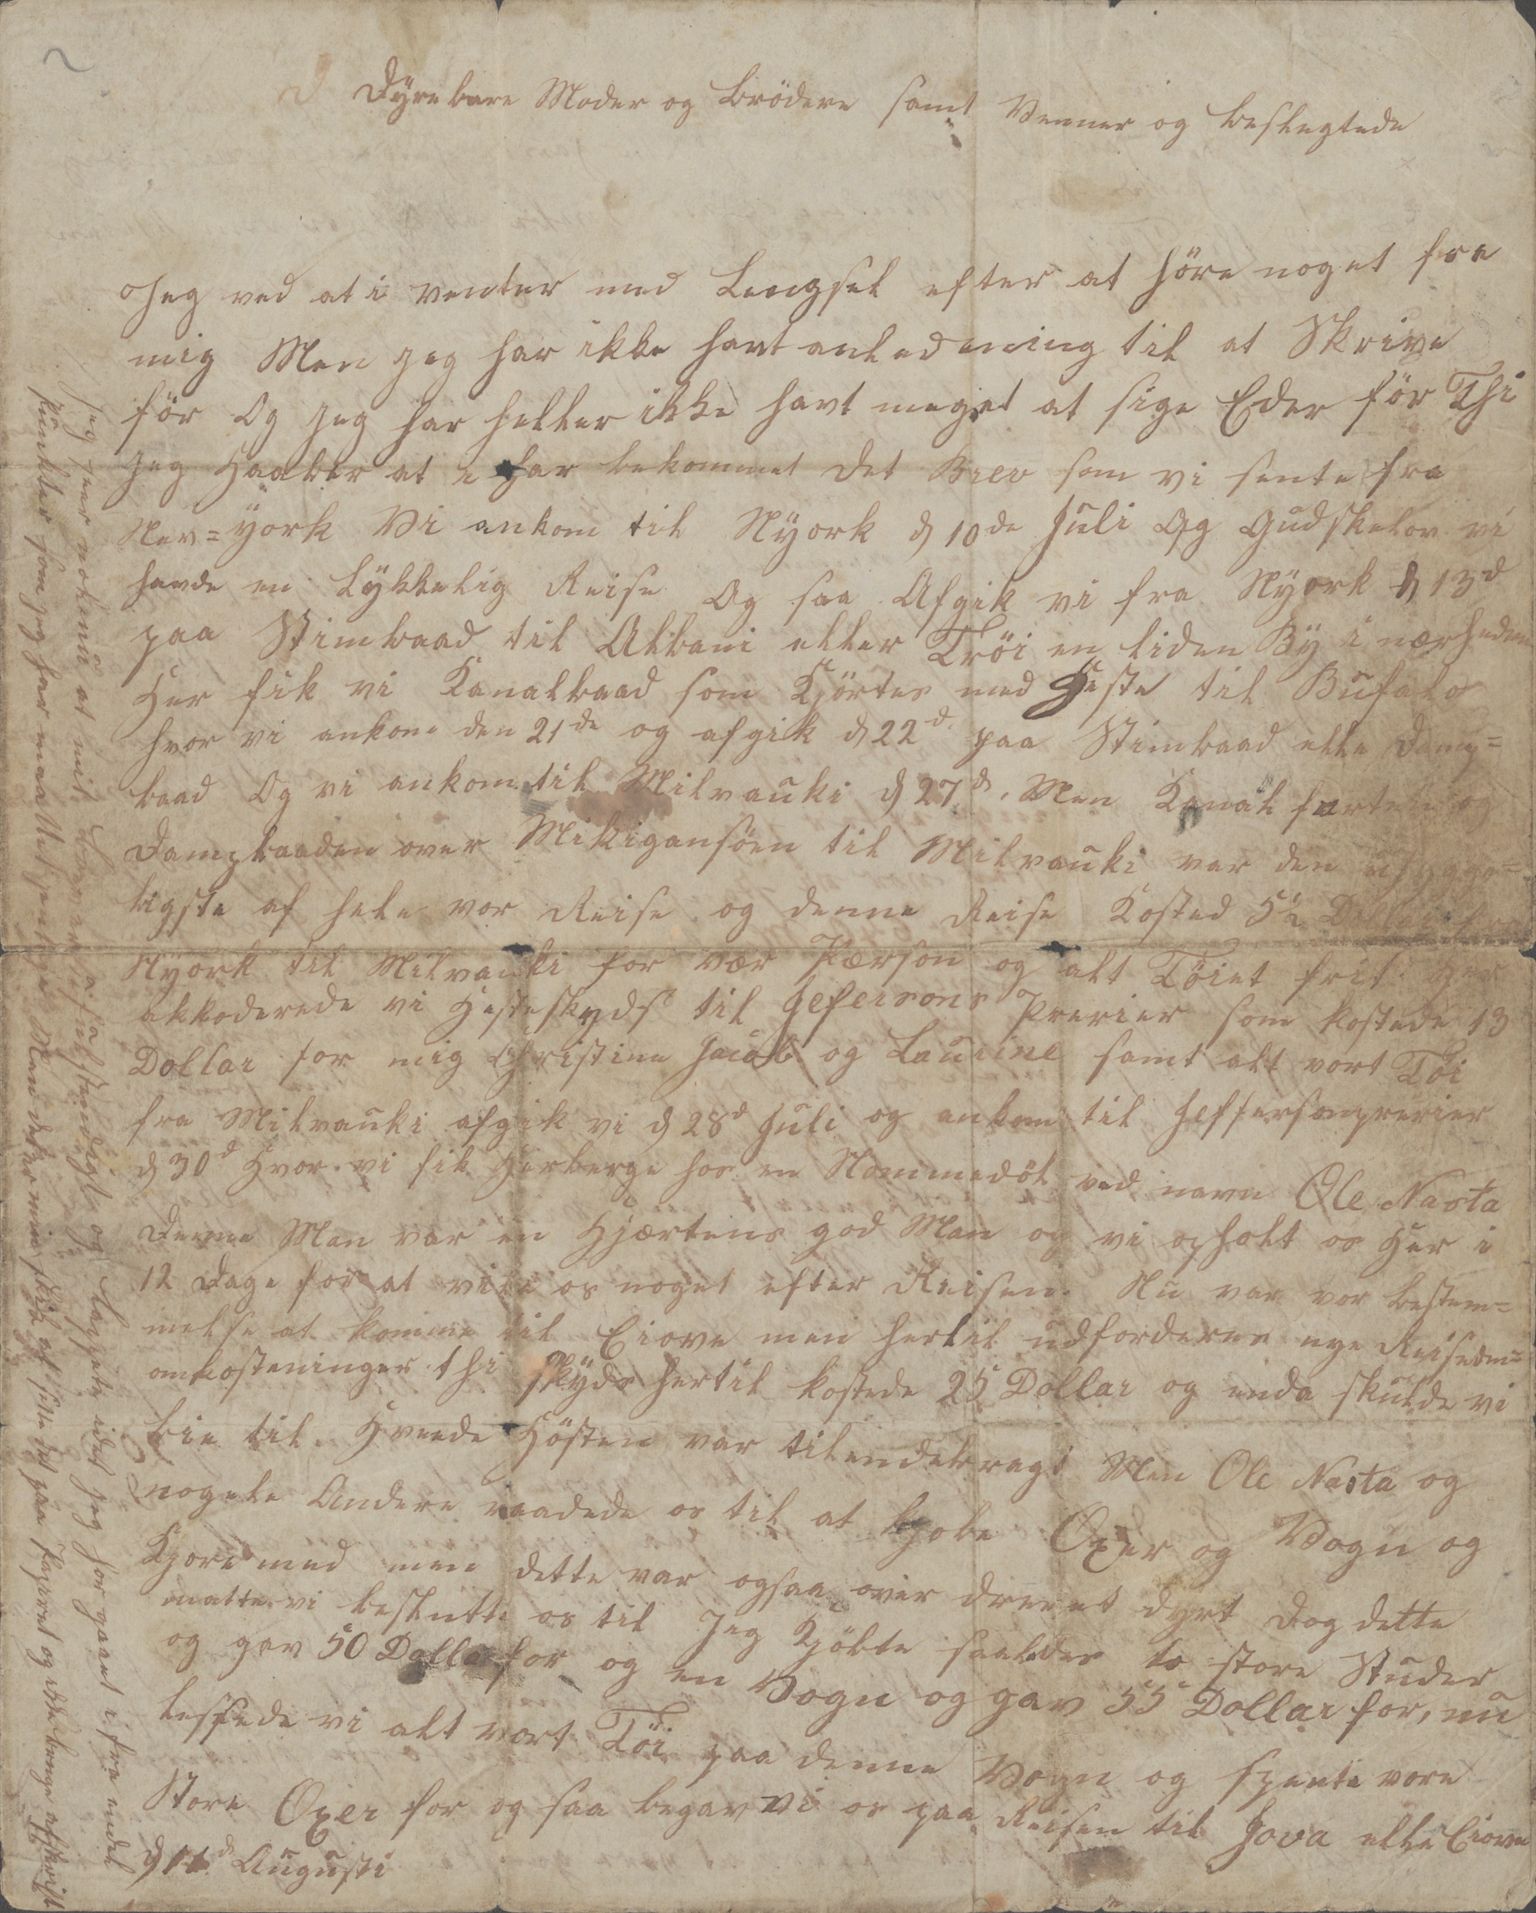 Dyrebare Moder og Brödere samt Venner og beslegtede
Jeg ved at i venter med Lengsel efter at höre noget fra
mig Men jeg har ikke havt anledening til at Skrive
för Og jeg har heller ikke havt meget at sige Eder för Thi
jeg Haaber at i har bekommet det Brev som vi sente fra
Nev=york Vi ankom til Nyork d 10de Juli Og Gudskelov vi
havde en Lykkelig Reise Og saa Afgik vi fra Nyork d 13d
paa Stimbaad til Albani eller Tröi en liden By i nærheden
Her fik vi Kanalbaad som Kjörtes med Heste til Bufalo
hvor vi ankom den 21de og afgik d 22d paa Stimbaad elle Damp=
baad Og vi ankom til Milvauki d 27d. Men Kanal farten og
Dampbaaden over Mikigansöen til Milvauki var den uhygge=
ligste af hele vor Reise og denne Reise Kosted 5½ Dollar fra
Nyork til Milvauki for vær Person og alt Töiet frit. Her
akkoderede vi Hesteskyds til Jefersons Prerier som kostede 13
Dollar for mig Christine Jacob og Laurine samt alt vort Töi
fra Milvauki afgik vi d 28d Juli og ankom til Jeffersonprerier
d 30d Hvor vi fik Herberge hos en Nommedöl ved navn Ole Nasta
Denne Man var en Hjærtens god Man og vi opholt os Her i
12 Dage for at vile os noget efter Reisen. Nu var vor bestem=
melse at komme til Eiova men hertil udforderes nye Reise
omkosteninger thi Skyds hertil kostede 25 Dollar og enda skulde vi
bie til Hveede Hösten var tilendebragt Men Ole Nasta og
nogele Andere raadede os til at kjobe Oxer og Vogn og
Kjore med men dette var ogsaa over drevet dyrt Dog dette
matte vi beslutte os til Jeg Kjöbte saaledes to store Studer
og gav 50 Dollar for og en Vogn og gav 55 Dollar for, nu
lessede vi alt vort Töi paa denne Vogn og spente vore
Store Oxer for og saa begav vi os paa Reisen til Jova elle Eiova
d 11d Augusti
Jeg seer nok nu at mit Brev er ufulstændigt og idet jeg for gaaet i fra endel
punkter som jeg har maa Men det er min skik at sette det paa Papiret og ikke bruge afskrift